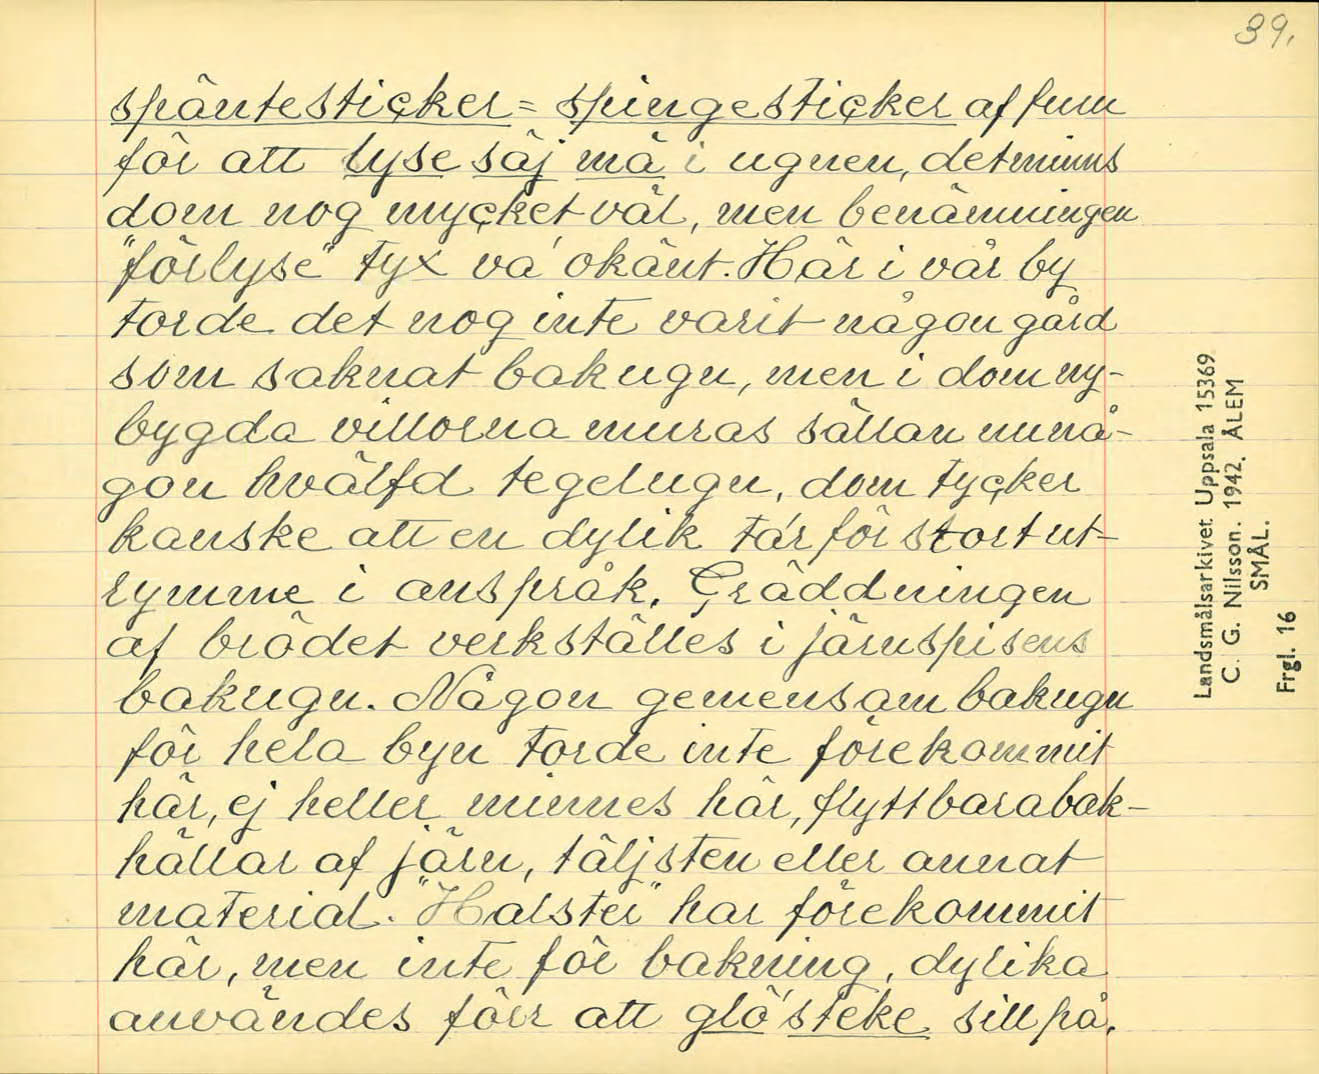 39.
späntesticker = spingesticker af furu
för att lyse säj mä i ugnen, det minns
dom nog mycket väl, men benämningen
"förlyse" tyx va' okänt. Här i vår by
torde det nog inte varit någon gård
som saknat bakugn, men i dom ny-
bygda villorna muras sällan nunå-
gon hvälfd tegelugn, dom tycker
kanske att en dylik ta'r för stort ut-
rymme i anspråk. Gräddningen
af brödet verkställes i järnspisens
bakugn. Någon gemensam bakugn
för hela byn torde inte förekommit
här, ej heller minnes här, flyttbara bak-
hällar af järn, täljsten eller annat
material. "Halster" har förekommit
här, men inte för bakning, dylika
användes förr att glö'steke sill på.
Landsmålsarkivet Uppsala 15369
C. G. Nilsson. 1942. ÅLEM
SMÅL.
Frgl. 16